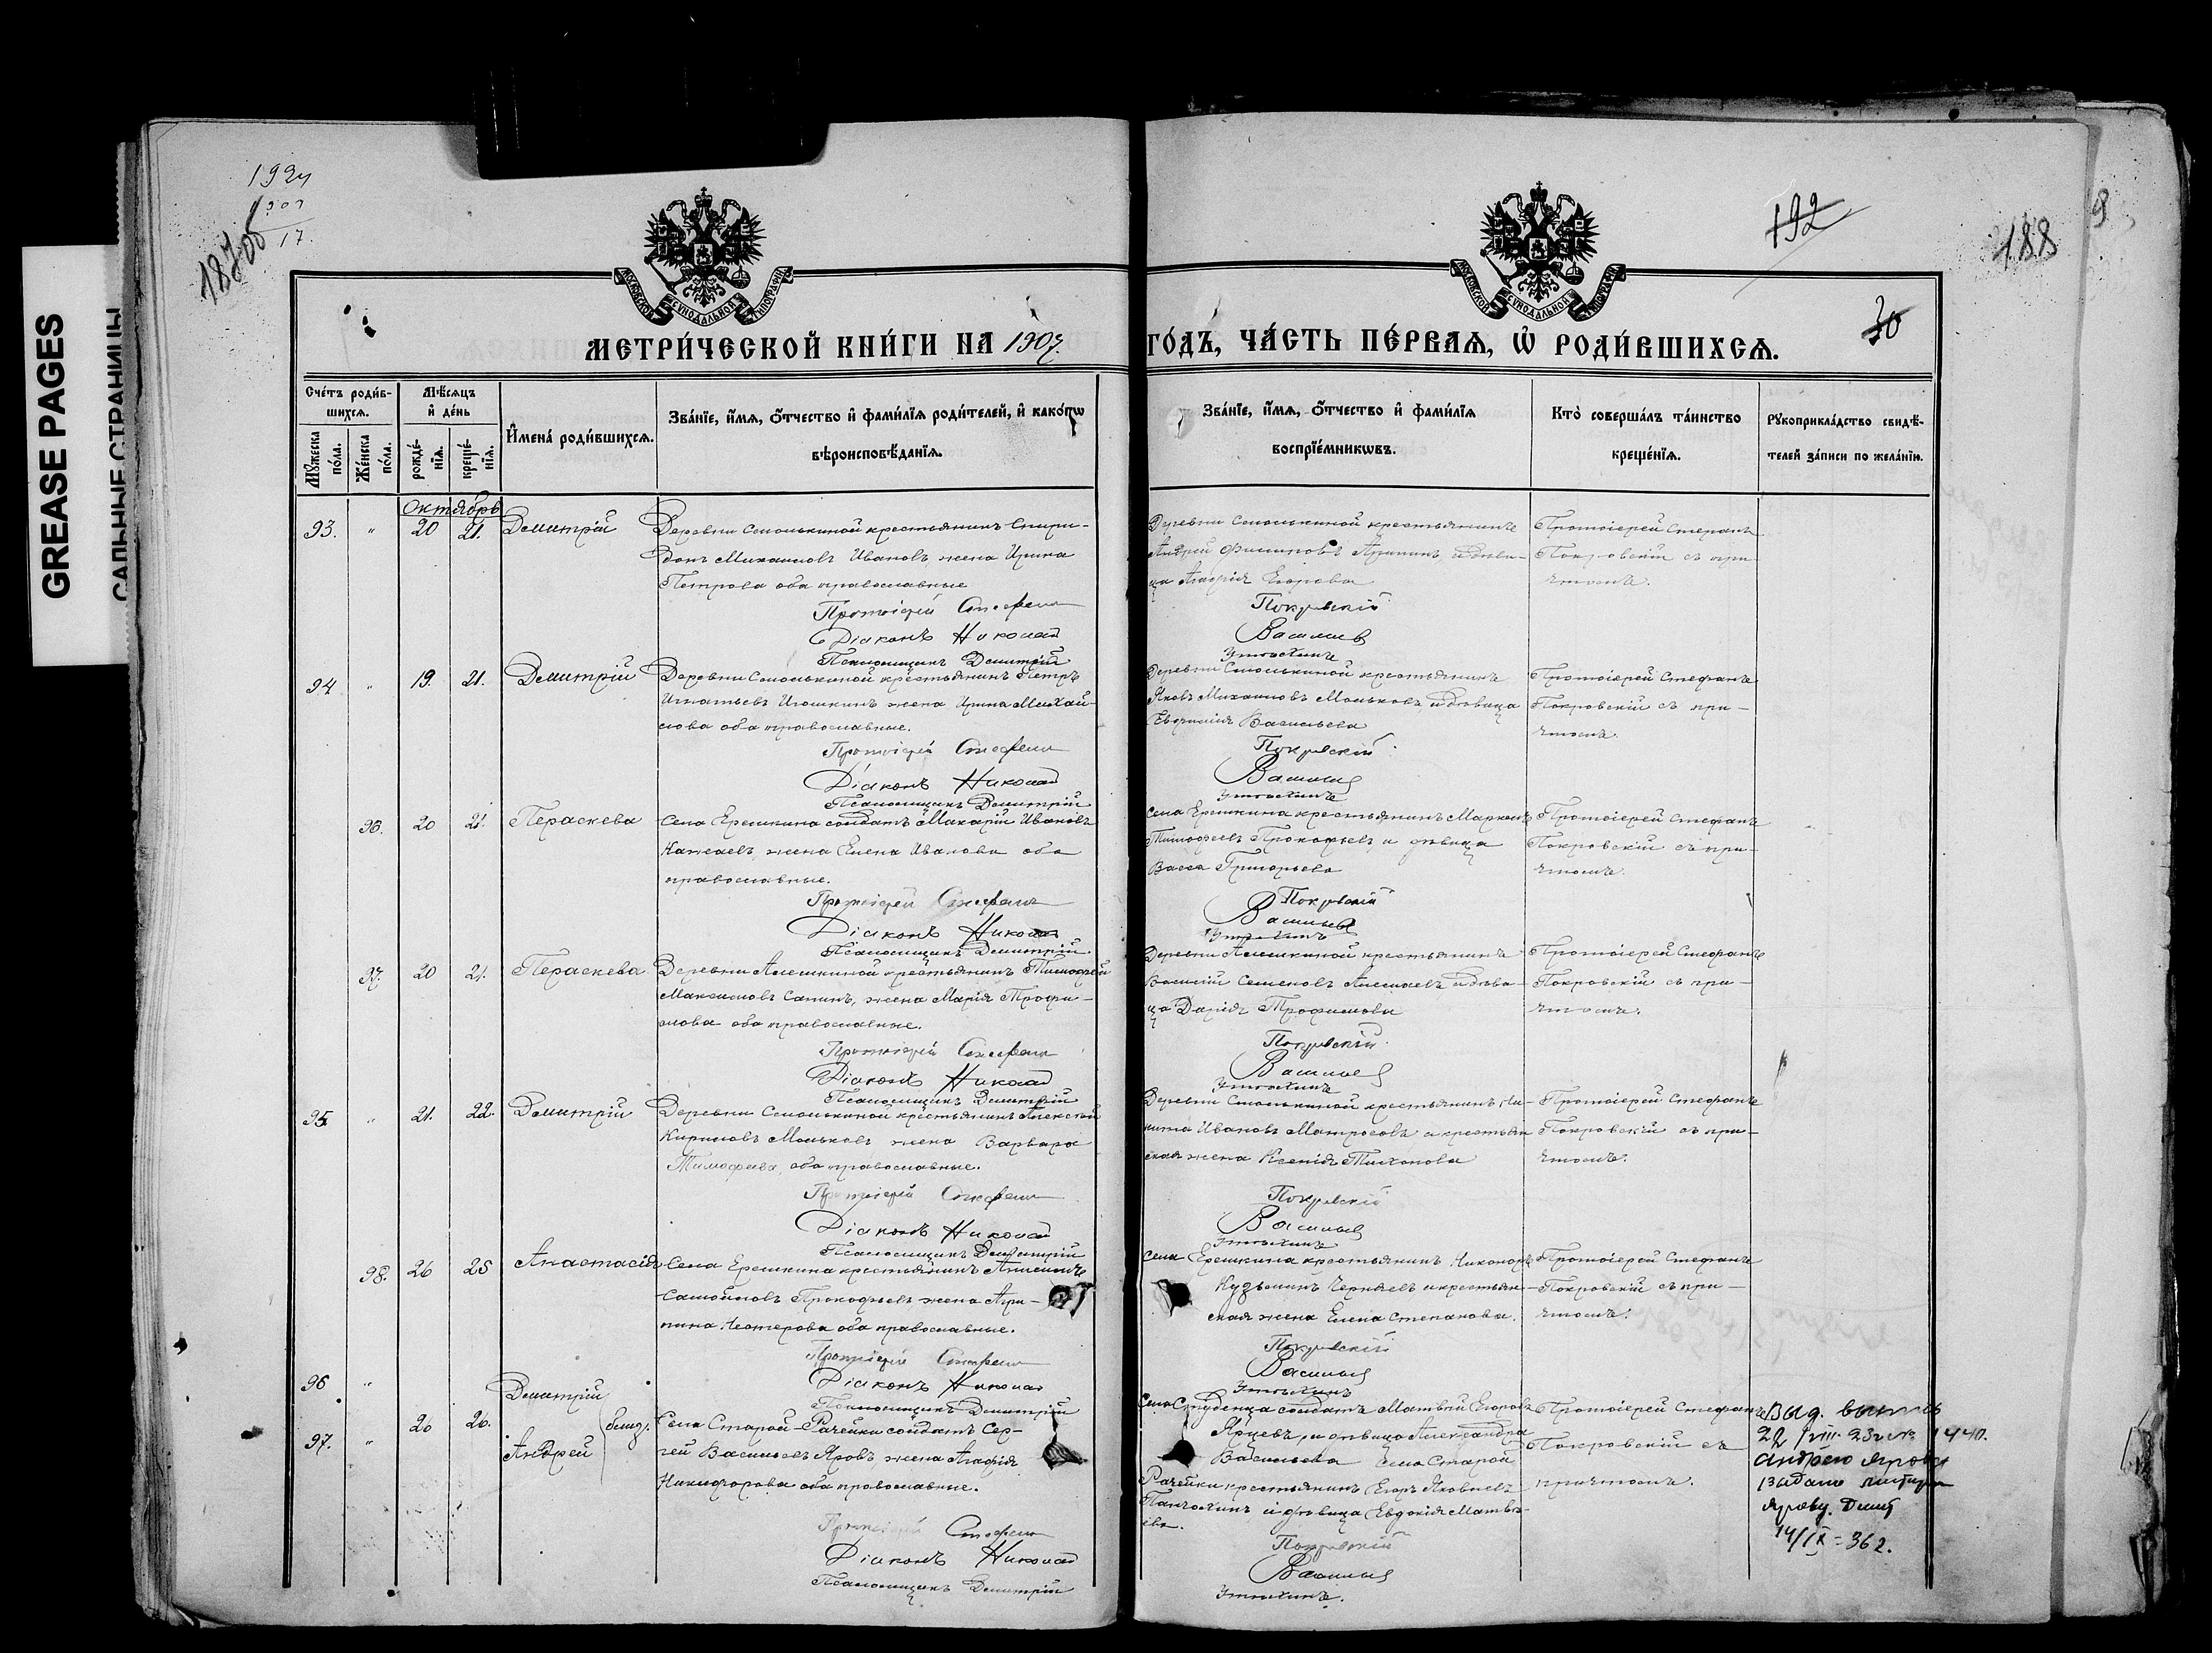 GREASE PAGES
САЛЬНЫЕ СТРАНИЦЫ
192
188
187об
30
МОСКОВСКОЙ СѴНОДАЛЬНОЙ ТИПОГРАФІИ
МОСКОВСКОЙ СѴНОДАЛЬНОЙ ТИПОГРАФІИ
МЕТРИ́ЧЕСКОЙ КНИ́ГИ НА 1907.
ГО́ДЪ, ЧА́СТЬ ПЕ́РВАѦ, Ѡ҆ РОДИ́ВШИХСѦ.
Сче́тъ роди́в-
шихсѧ.
Мꙋ́жеска по́ла.
Же́нска по́ла.
Мѣ́сѧцъ
и҆ де́нь
рожде́-
нїѧ.
креще́-
нїѧ.
И҆мена̀ роди́вшихсѧ.
Зва́нїе, и҆́мѧ, ѻ҆́тчество и҆ фами́лїѧ роди́телей, и҆ како́гѡ
вѣроисповѣ́данїѧ.
Зва́нїе, и҆́мѧ, ѻ҆́тчество и҆ фами́лїѧ
воспрїе́мникѡвъ.
Кто̀ соверша́лъ та́инство
креще́нїѧ.
Рꙋкоприкла́дство свидѣ́-
телей за́писи по жела́нїю.
Октябрь
93. " 20 21. Димитрій
Деревни Смолькиной крестьянинъ Спири-
донъ Михаиловъ Ивановъ, жена Ирина
Петрова оба православные
Протоіерей Стефанъ
Діаконъ Николай
Псаломщикъ Димитрій
Деревни Смолькиной крестьянинъ
Андрей и дѣви-
ца Агафія Егорова
Покровскій
Васильев
Утѣхинъ
Протоіерей Стефанъ
Покровскій съ при-
чтомъ.
94. " 19. 21. Димитрій
Деревни Смолькиной крестьянинъ Петръ
Игнатьевъ Игошкинъ жена Ирина Михай-
лова оба православные.
Протоіерей Стефанъ
Діаконъ Николай
Псаломщикъ Димитрій
Деревни Смолькиной крестьянинъ
Яковъ Михаиловъ Мольковъ, и дѣвица
Евфимія Васильева
Покровскій
Васильев
Утѣхинъ
Протоіерей Стефанъ
Покровскій съ при-
чтомъ.
96. 20 21. Параскева
Села Ерешкина солдатъ Макарій Ивановъ
жена Елена Иванова оба
православные.
Протоіерей Стефанъ
Діаконъ Николай
Псаломщикъ Димитрій
Села Ерешкина крестьянинъ Маркелъ
Тимофеевъ Прокофьевъ, и дѣвица
Васса Григорьева
Покровскій
Васильев
Утѣхинъ
Протоіерей Стефанъ
Покровскій съ при-
чтомъ.
97. 20 21. Параскева
Деревни Алешкиной крестьянинъ Тимофей
Максимовъ Сапинъ, жена Марія Трофи-
мова оба православные.
Протоіерей Стефанъ
Діаконъ Николай
Псаломщикъ Димитрій
Деревни Алешкиной крестьянинъ
Василій Семеновъ и дѣви-
ца Дарія Трофимова
Покровскій
Васильев
Утѣхинъ
Протоіерей Стефанъ
Покровскій съ при-
чтомъ.
95. " 21. 22. Димитрій
Деревни Смолькиной крестьянинъ Алексѣй
Кириловъ Мольковъ жена Варвара
Тимофеева, оба православные.
Протоіерей Стефанъ
Діаконъ Николай
Псаломщикъ Димитрій
Деревни Смолькиной крестьянинъ Ни-
кита Ивановъ Матросовъ и крестьян-
ская жена Ксенія Тихонова
Покровскій
Васильев
Утѣхинъ
Протоіерей Стефанъ
Покровскій съ при-
чтомъ.
98. 26 28 Анастасія
Села Ерешкина крестьянинъ
Самойловъ Прокофьевъ жена Агри-
пина Нестерова оба православные.
Протоіерей Стефанъ
Діаконъ Николай
Псаломщикъ Димитрій
Села Ерешкина крестьянинъ Никоноръ
Кузьминъ Черняевъ и крестьян-
ская жена Елена Степанова.
Покровскій
Васильев
Утѣхинъ
Протоіерей Стефанъ
Покровскій съ при-
чтомъ.
96 " Димитрій
97. " 26 26. Андрей близн.
Села Старой Рачейки солдатъ Сер-
гей Васильевъ Яровъ жена Агафія
Никифорова оба православные.
Протоіерей Стефанъ
Діаконъ Николай
Псаломщикъ Димитрій
Села Студенца солдатъ Матвѣй Егоровъ
Ярцевъ, и дѣвица Александра
Васильева Села Старой
Рачейки крестьянинъ Егоръ Яковлевъ
и дѣвица Евдокія Матвѣ-
ева.
Покровскій
Васильев
Утѣхинъ.
Протоіерей Стефанъ
Покровскій съ
причтомъ.
Выд.
22/VIII 23 г. № 1440.
Андрею Ярову
Выдана
Ярову Дмит
14/IX - 362.